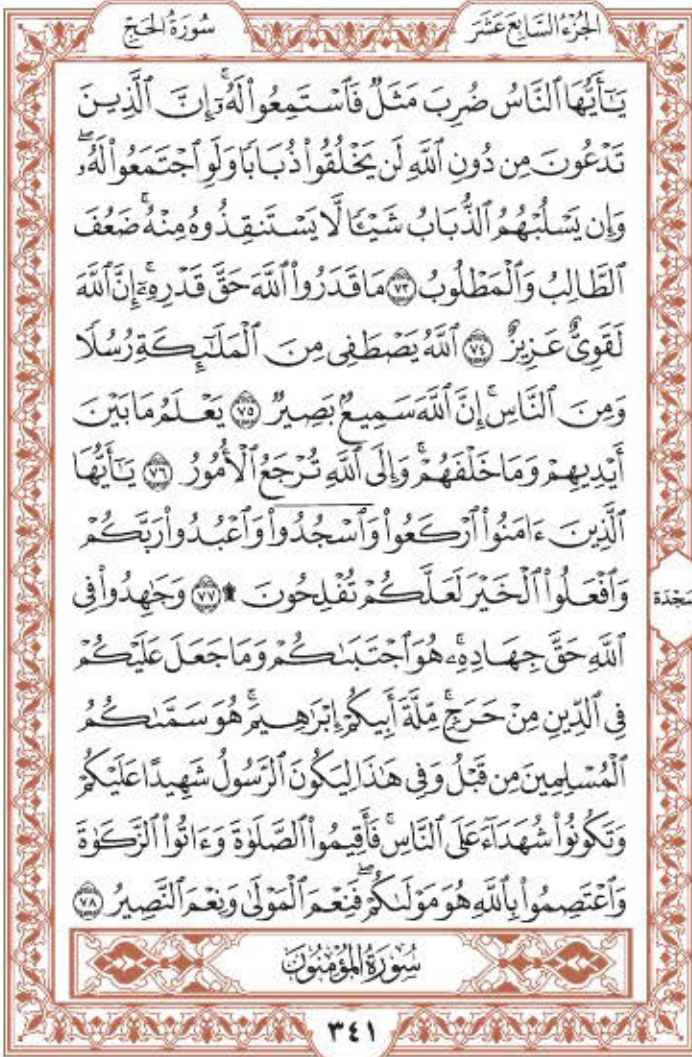 الجُزْءُ السَّابِعَ عَشَرَ
سُورَةُ الحَجِّ
يَٰٓأَيُّهَا ٱلنَّاسُ ضُرِبَ مَثَلٌ فَٱسْتَمِعُوا۟ لَهُۥٓ ۚ إِنَّ ٱلَّذِينَ
تَدْعُونَ مِن دُونِ ٱللَّهِ لَن يَخْلُقُوا۟ ذُبَابًا وَلَوِ ٱجْتَمَعُوا۟ لَهُۥ ۖ
وَإِن يَسْلُبْهُمُ ٱلذُّبَابُ شَيْـًٔا لَّا يَسْتَنقِذُوهُ مِنْهُ ۚ ضَعُفَ
ٱلطَّالِبُ وَٱلْمَطْلُوبُ ٧٣ مَا قَدَرُوا۟ ٱللَّهَ حَقَّ قَدْرِهِۦٓ ۚ إِنَّ ٱللَّهَ
لَقَوِىٌّ عَزِيزٌ ٧٤ ٱللَّهُ يَصْطَفِى مِنَ ٱلْمَلَٰٓئِكَةِ رُسُلًا
وَمِنَ ٱلنَّاسِ ۚ إِنَّ ٱللَّهَ سَمِيعٌۢ بَصِيرٌ ٧٥ يَعْلَمُ مَا بَيْنَ
أَيْدِيهِمْ وَمَا خَلْفَهُمْ ۗ وَإِلَى ٱللَّهِ تُرْجَعُ ٱلْأُمُورُ ٧٦ يَٰٓأَيُّهَا
ٱلَّذِينَ ءَامَنُوا۟ ٱرْكَعُوا۟ وَٱسْجُدُوا۟ وَٱعْبُدُوا۟ رَبَّكُمْ
وَٱفْعَلُوا۟ ٱلْخَيْرَ لَعَلَّكُمْ تُفْلِحُونَ ۩ ٧٧ وَجَٰهِدُوا۟ فِى
سَجْدَة
ٱللَّهِ حَقَّ جِهَادِهِۦ ۚ هُوَ ٱجْتَبَىٰكُمْ وَمَا جَعَلَ عَلَيْكُمْ
فِى ٱلدِّينِ مِنْ حَرَجٍ ۚ مِّلَّةَ أَبِيكُمْ إِبْرَٰهِيمَ ۚ هُوَ سَمَّىٰكُمُ
ٱلْمُسْلِمِينَ مِن قَبْلُ وَفِى هَٰذَا لِيَكُونَ ٱلرَّسُولُ شَهِيدًا عَلَيْكُمْ
وَتَكُونُوا۟ شُهَدَآءَ عَلَى ٱلنَّاسِ ۚ فَأَقِيمُوا۟ ٱلصَّلَوٰةَ وَءَاتُوا۟ ٱلزَّكَوٰةَ
وَٱعْتَصِمُوا۟ بِٱللَّهِ هُوَ مَوْلَىٰكُمْ ۖ فَنِعْمَ ٱلْمَوْلَىٰ وَنِعْمَ ٱلنَّصِيرُ ٧٨
سُورَةُ المُؤْمِنُونَ
٣٤١